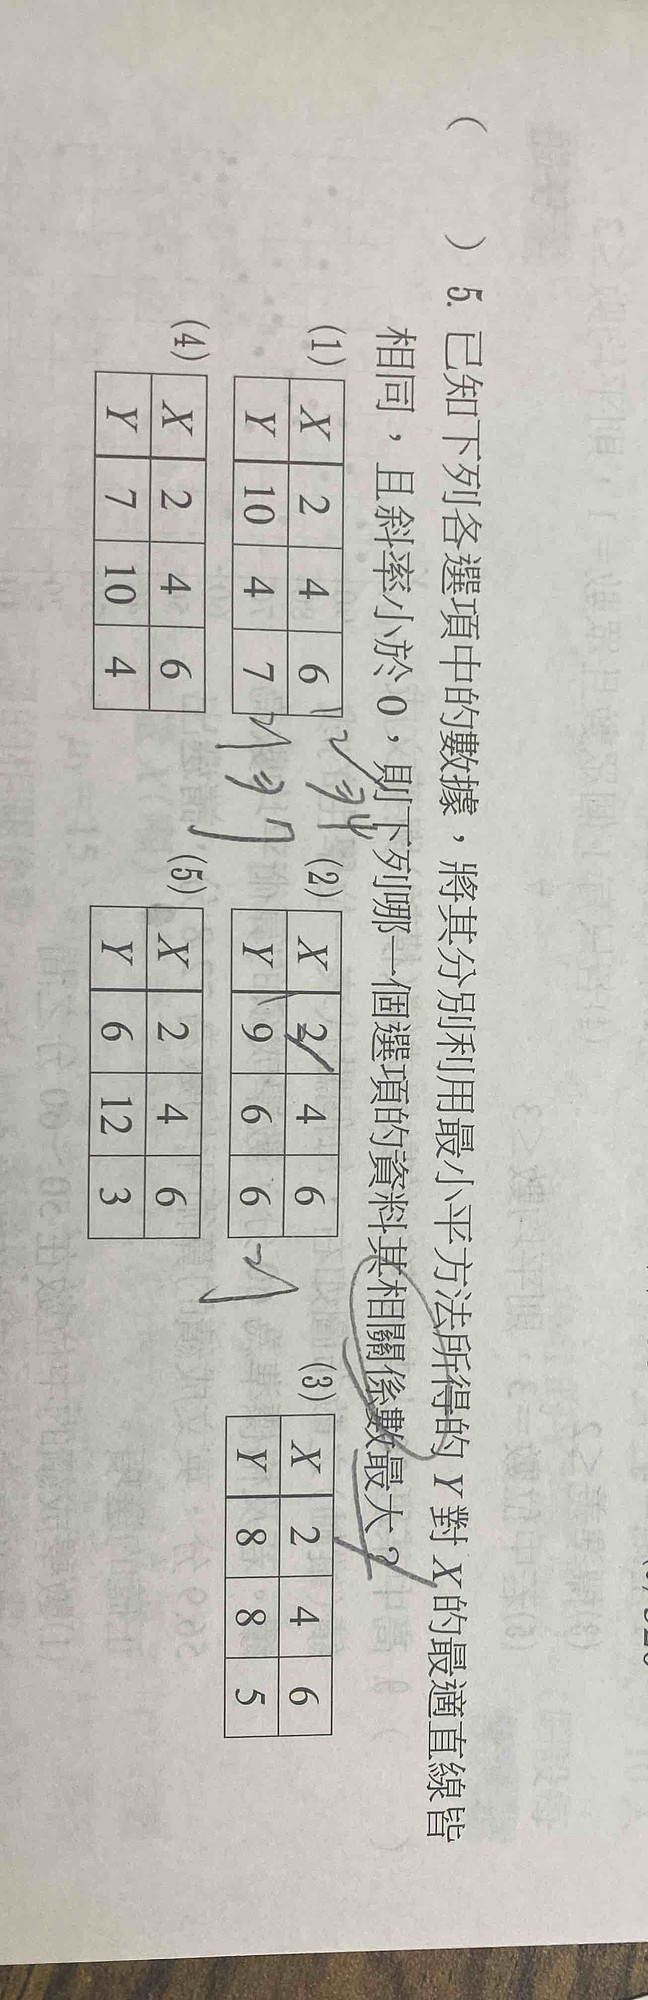 ( ) 5. 已知下列各選項中的數據，將其分別利用最小平方法所得的 Y 對 X 的最適直線皆
相同，且斜率小於 0，則下列哪一個選項的資料其相關係數最大？
(1) X 2 4 6
Y 10 4 7
(2) X 2 4 6
Y 9 6 6
(3) X 2 4 6
Y 8 8 5
(4) X 2 4 6
Y 7 10 4
(5) X 2 4 6
Y 6 12 3